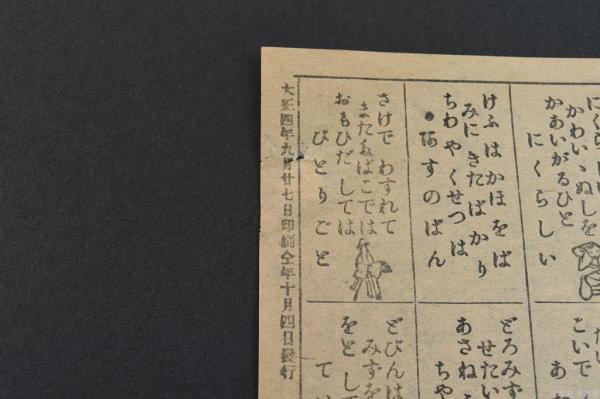 かわいゝぬしを
かあいがるひと
にくらしい
けふはかほをば
みにきたばかり
ちわやくせつは
あすのばん
さけでわすれて
またたばこでは
おもひだしては
ひとりごと
こいで
どろみず
せたい
あさね
どびんは
みずを
をとして
大正四年九月廿七日印刷全年十月四日發行